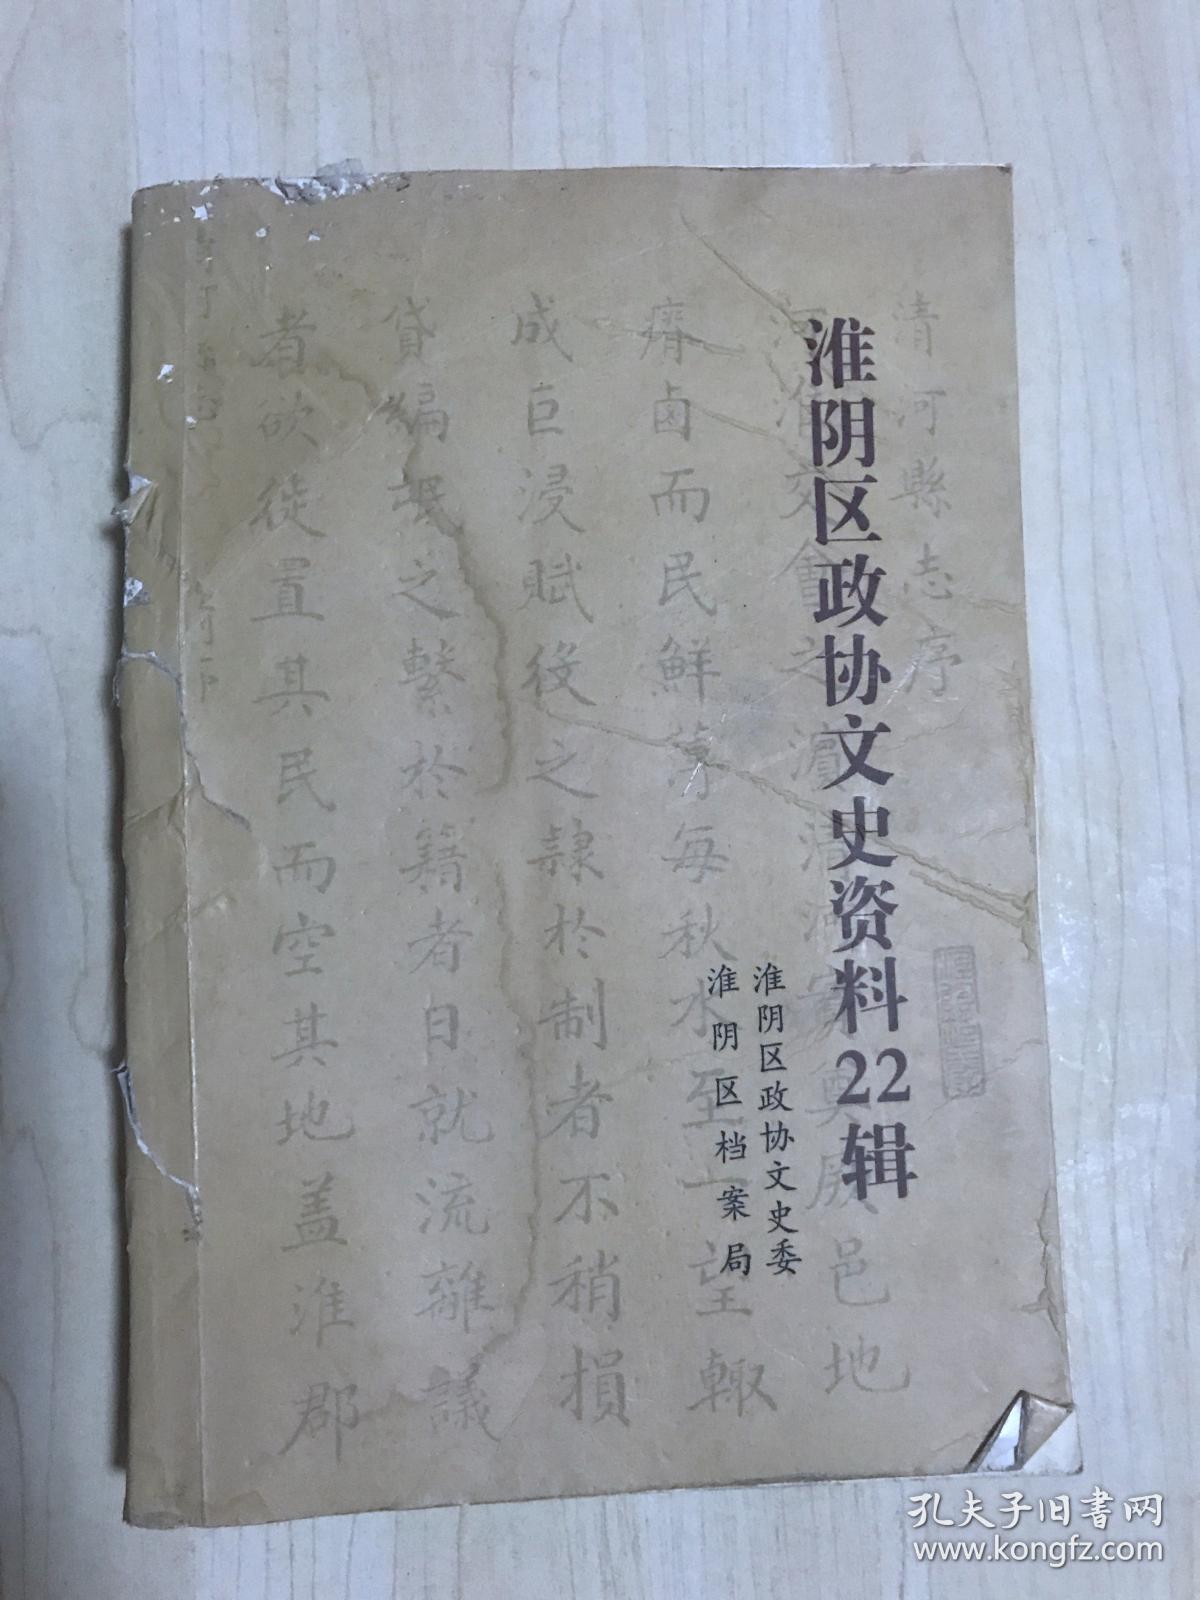 淮阴区政协文史资料22辑
淮阴区政协文史委
淮阴区档案局
清河縣志序
淮交會之
邑地
瘠鹵而民鮮
每秋水至一望輙
成巨浸賦役之隷於制者不稍損
貸編氓之繫於籍者日就流離議
者欲徙置其民而空其地盖淮郡
孔夫子旧书网
www.kongfz.com